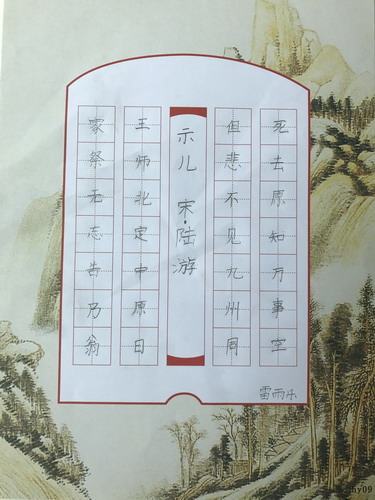 死去原知万事空
但悲不见九州同
示儿 宋·陆游
王师北定中原日
家祭无志告乃翁
雷雨乐